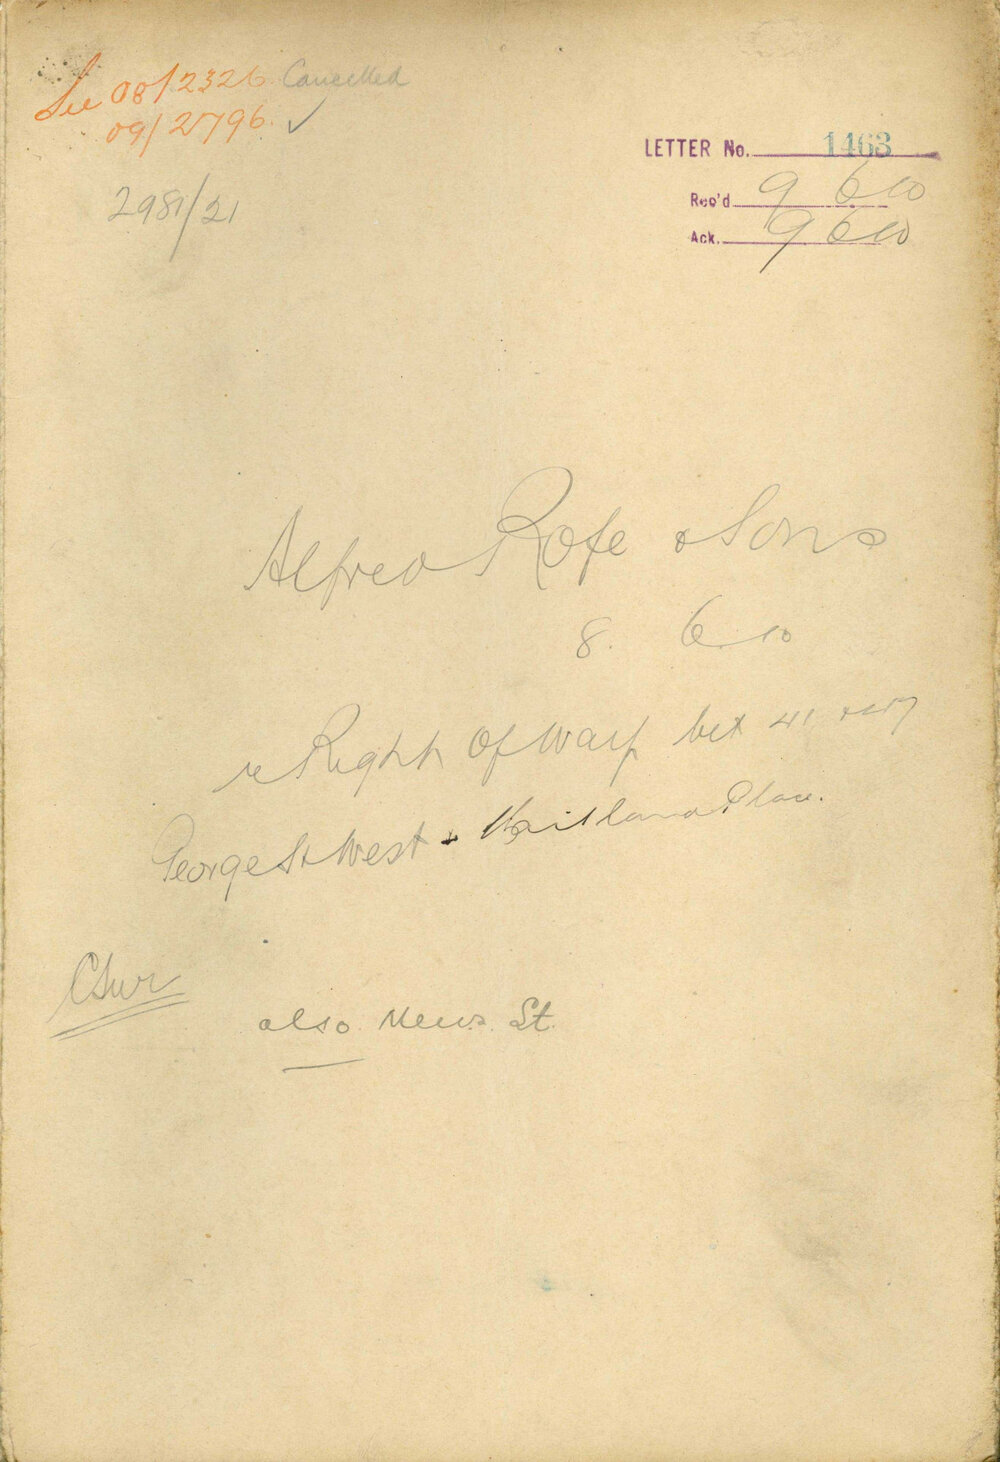 See 08/2326 Cancelled
09/2796 ✓
2981/21
LETTER No. 1463
Rec'd 9 6 10
Ack. 9 6 10
Alfred Rofe & Sons
8. 6. 10
re Right Of Way bet 41
George St West & Maitland Place.
also Mews St.